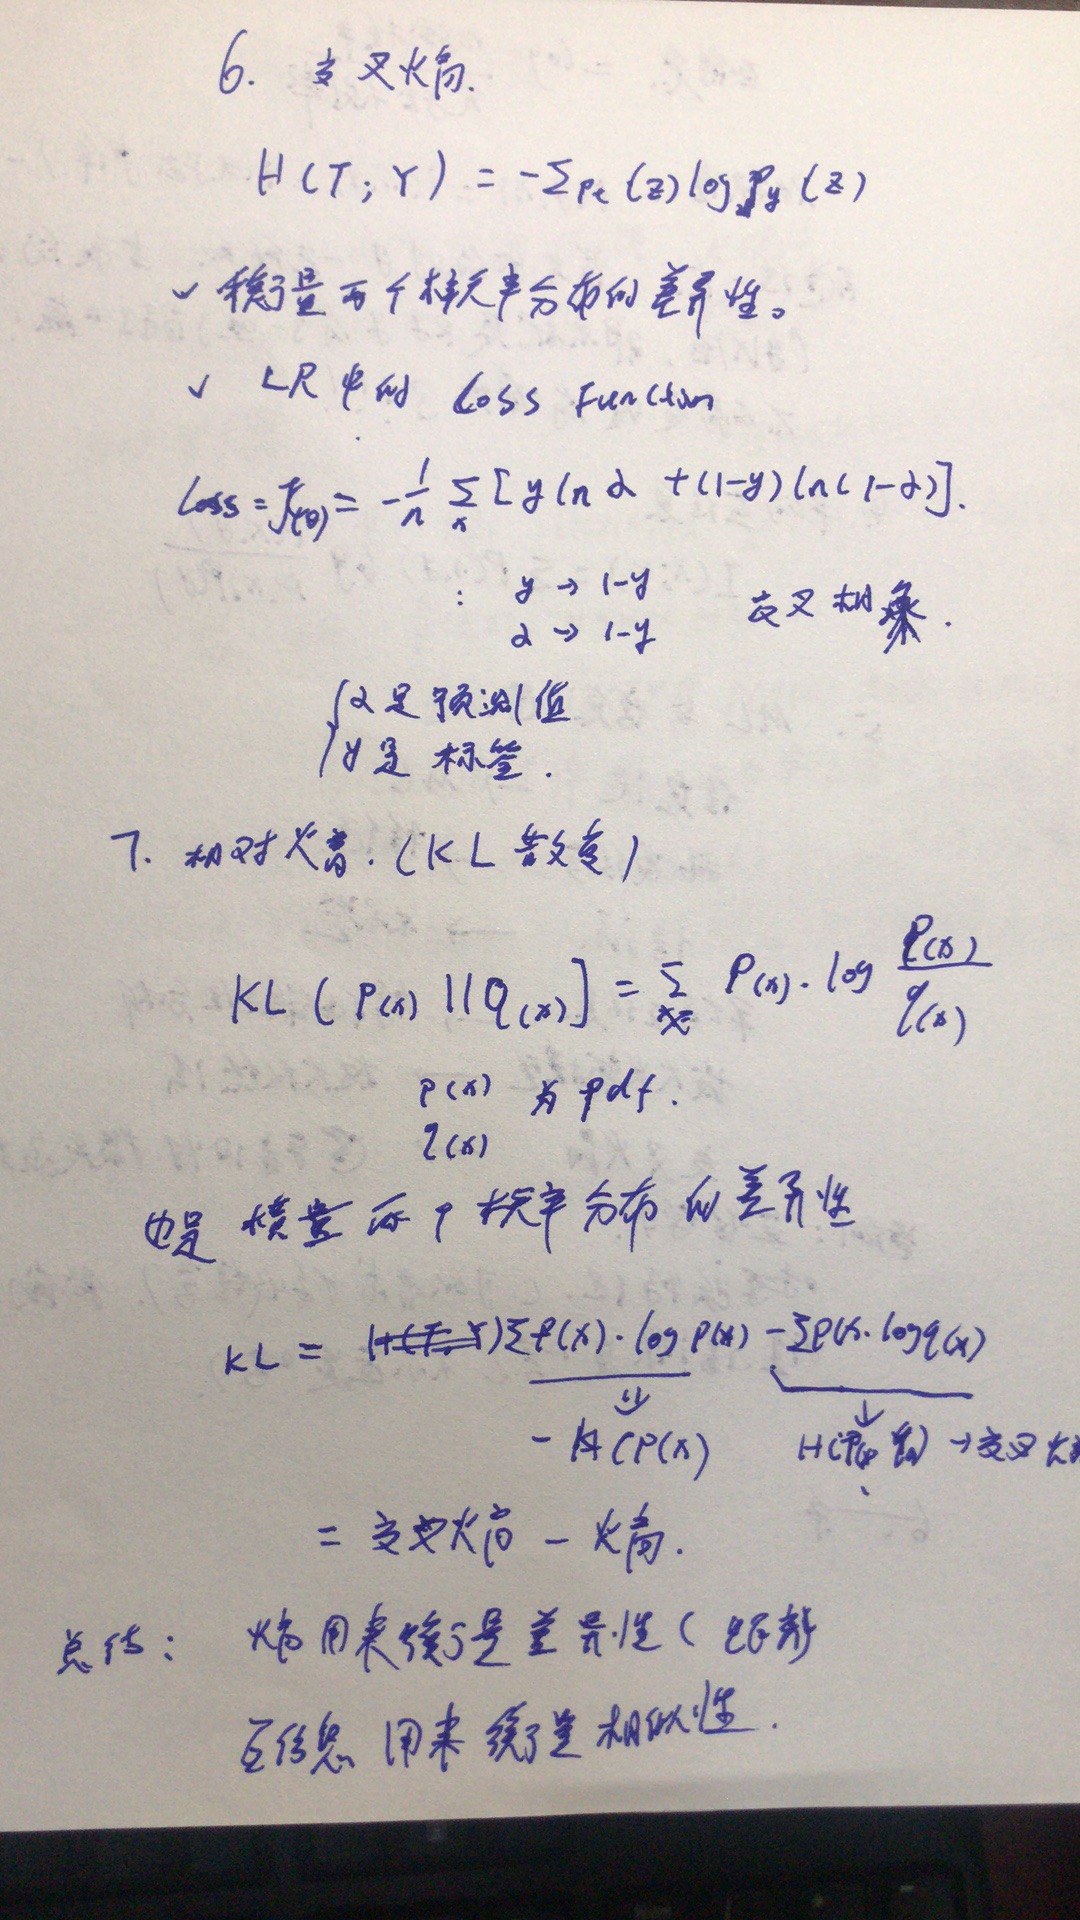 6. 交叉熵.
H(T; Y) = -Σ Pt(z) log Py(z)
✓ 衡量两个概率分布的差异性。
✓ LR中的 Loss Function
Loss = J(θ) = -1/n Σx [y ln α + (1-y) ln(1-α)].
: y → 1-y
α → 1-y 交叉相乘.
{ α是预测值
y是标签.
7. 相对熵. (KL散度)
KL ( P(x) || Q(x) ] = Σx P(x) · log P(x)/q(x)
p(x) 为 pdf.
q(x)
也是 横量两个概率分布的差异性
KL = Σ P(x) · log P(x) - Σ P(x · log q(x)
⇓ ↓
- H(P(x) H(P q) → 交叉
= 交叉熵 - 熵.
总结: 熵用来衡量差异性 (
互信息 用来衡量相似性.